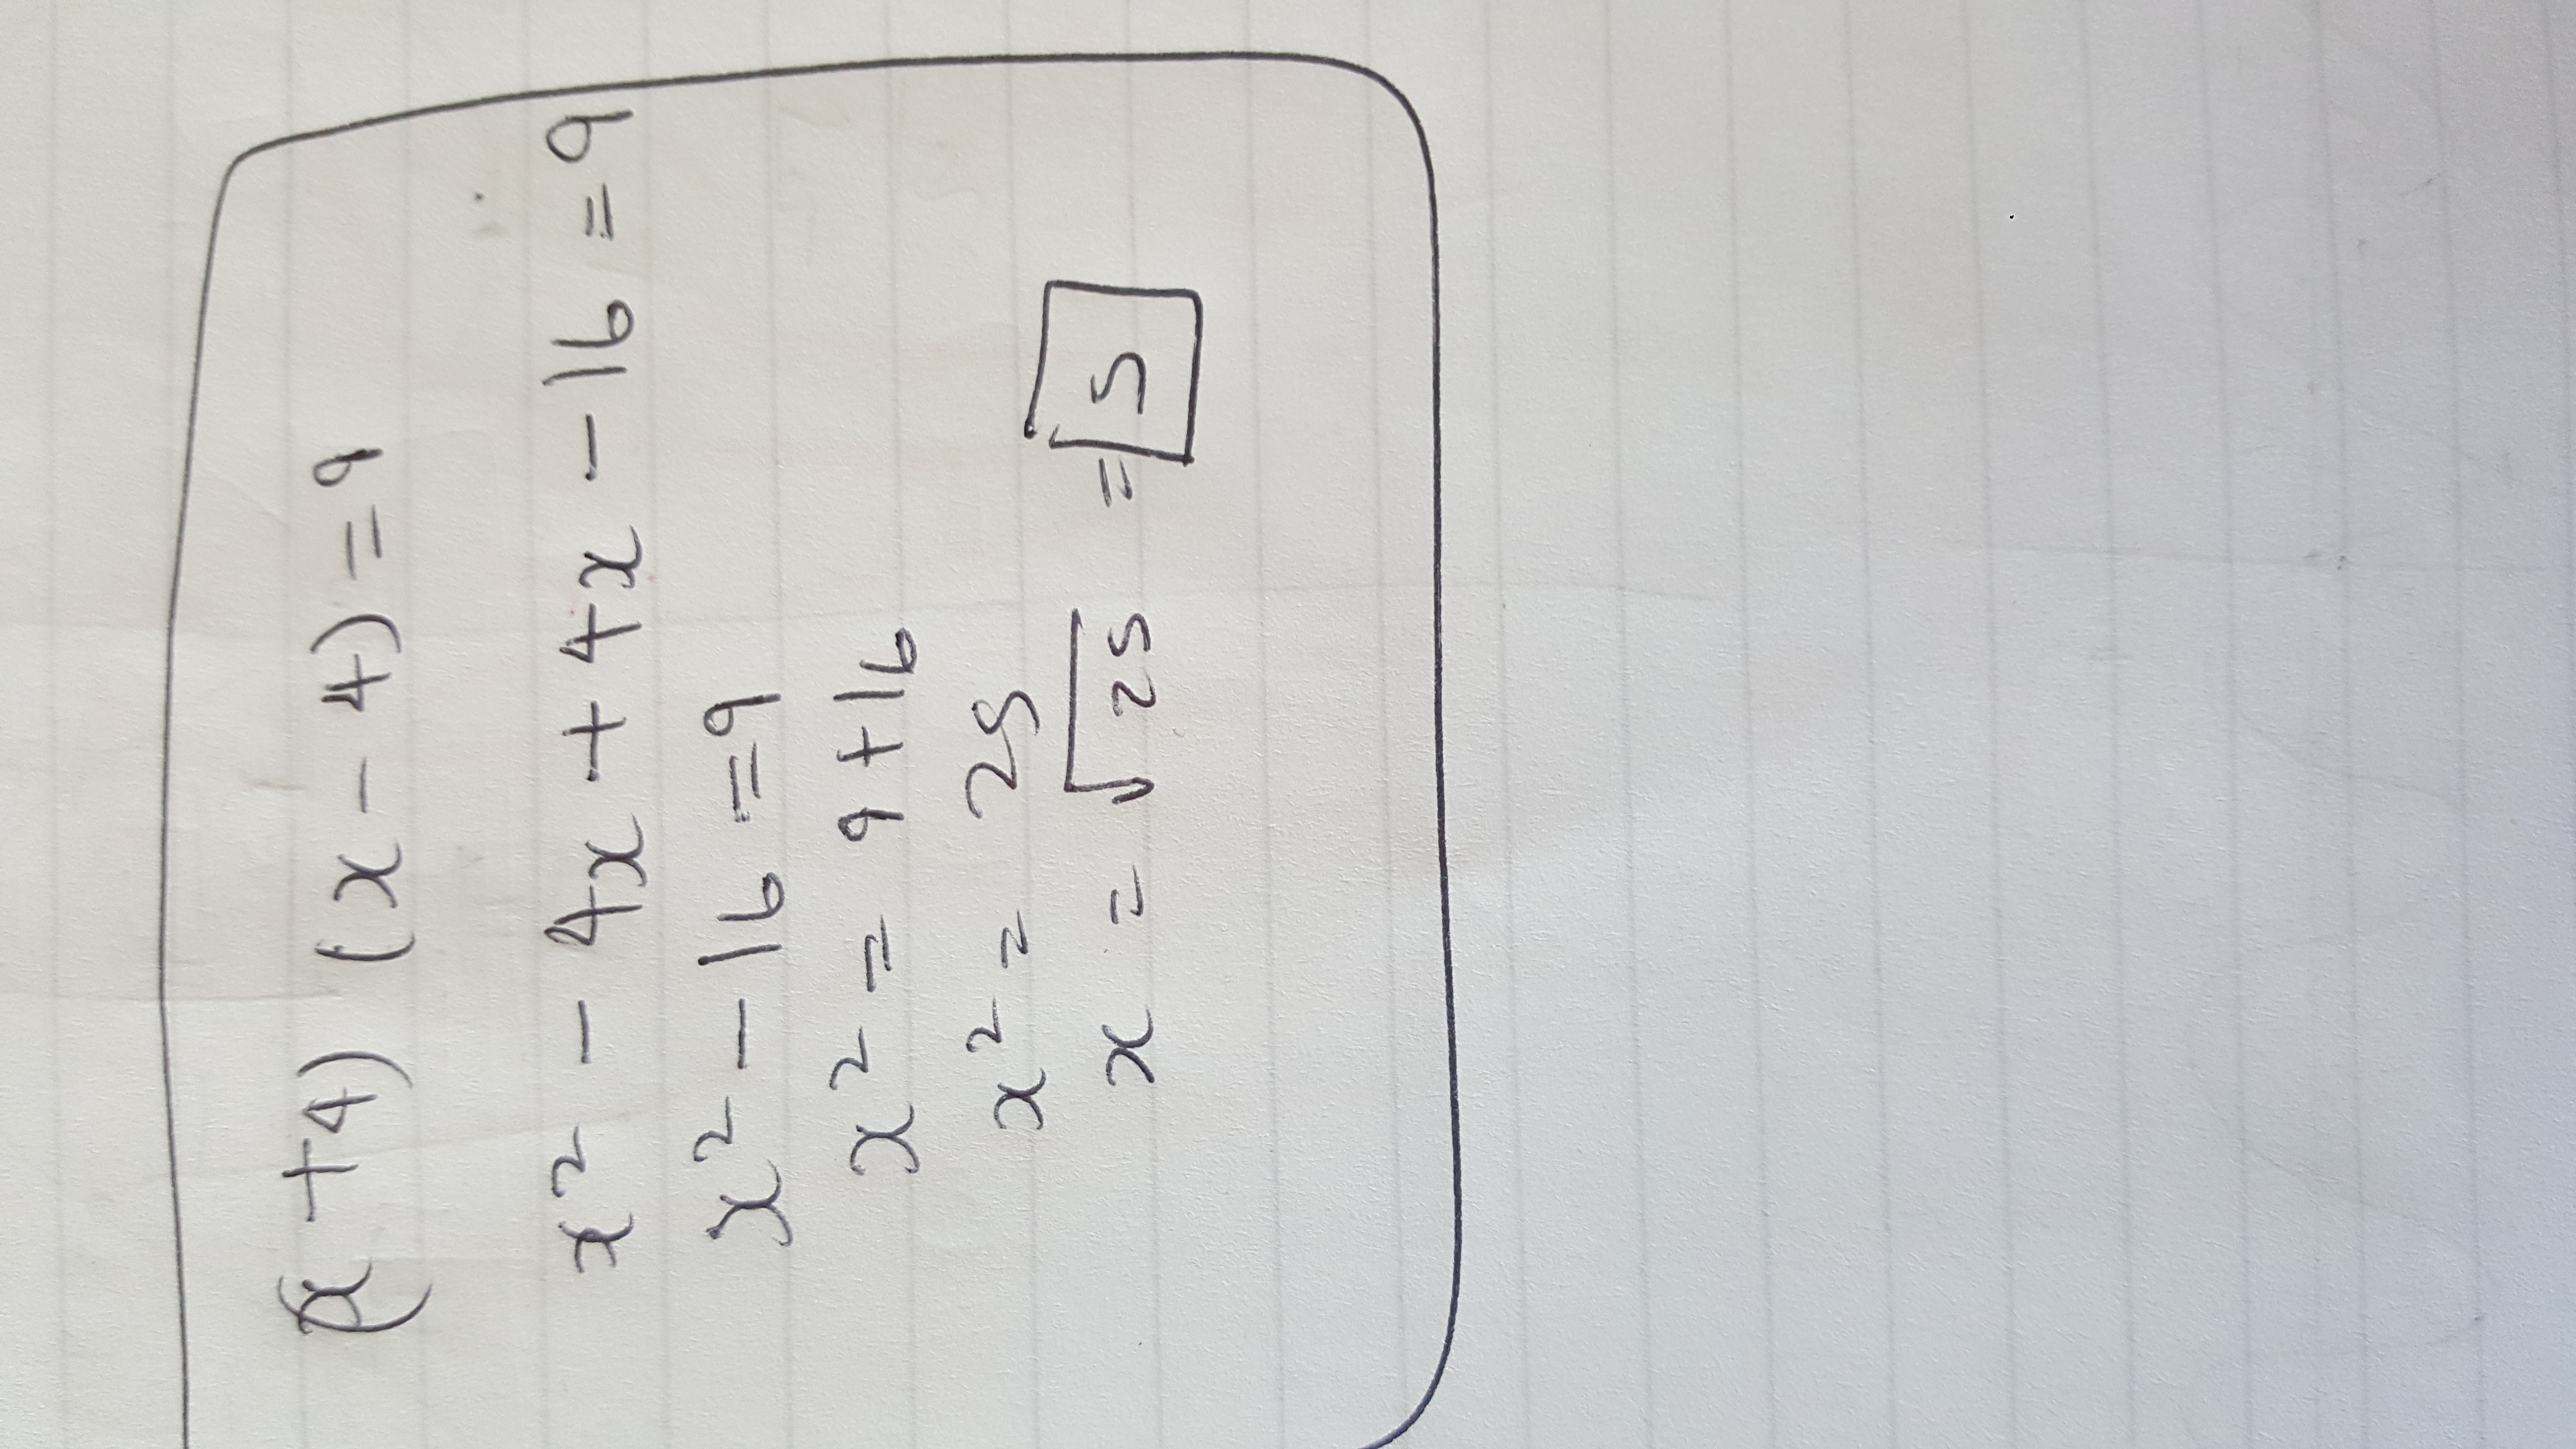 (x+4) (x-4) = 9
x² - 4x + 4x - 16 = 9
x² - 16 = 9
x² = 9 + 16
x² = 25
x = √25 = 5